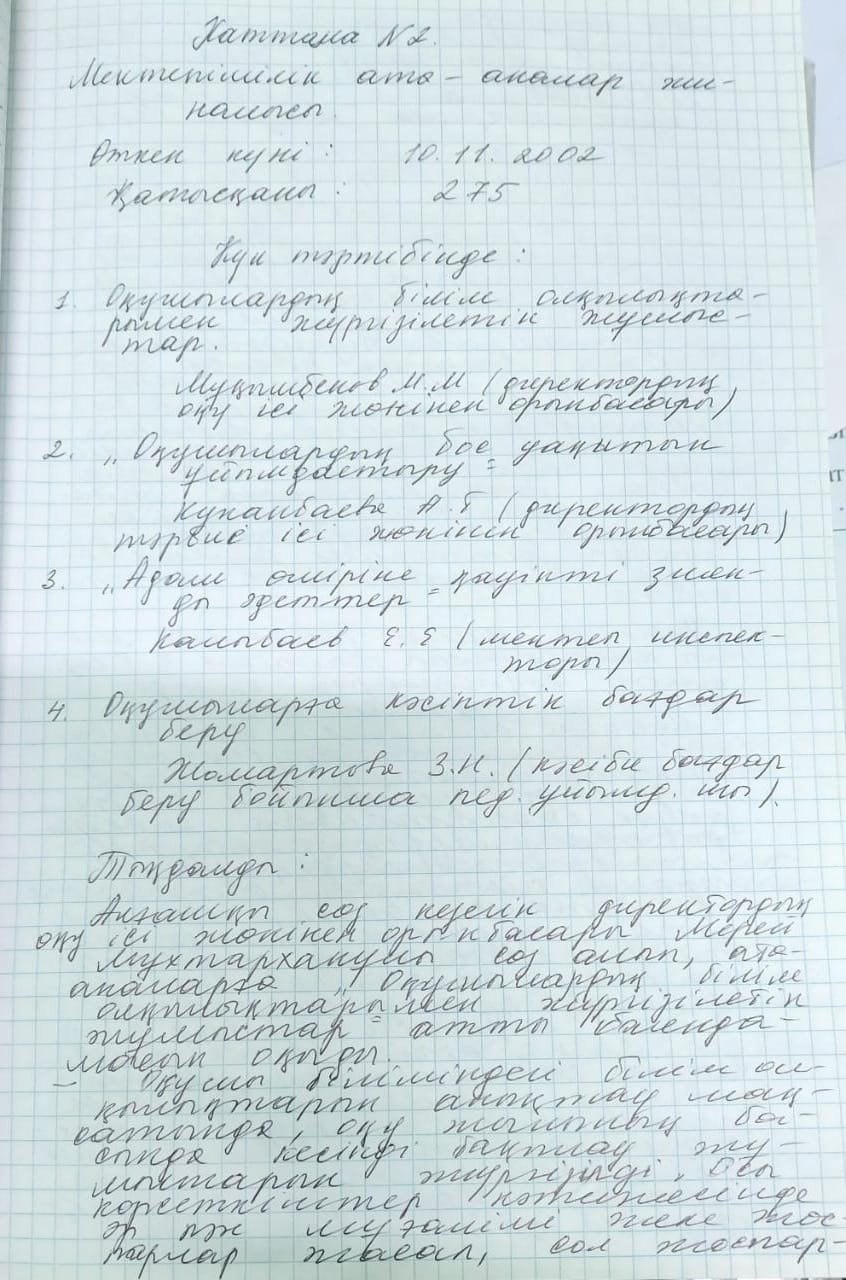 Хаттама №2.
Мектепішілік ата-аналар жи-
налысы.
Өткен күні: 10.11.2002
Қатысқаны: 275
Күн тәртібінде:
1. Оқушылардың білім олқылықта-
рымен жүргізілетін жұмыс-
тар.
Мұқымбеков М.М (директордың
оқу ісі жөнінен орынбасары)
2. „Оқушылардың бос уақытын
ұйымдастыру"
Кунанбаева А.Б (директордың
тәрбие ісі жөнінен орынбасары)
3. „Адам өміріне қауіпті зиян-
ды әдеттер"
Калыбаев Е.Е (мектеп инспек-
торы)
4. Оқушыларға кәсіптік бағдар
беру
Жомартова З.Н. (кәсіби бағдар
беру бойынша пед. ұйымд. шы).
Тыңдалды:
Алғашқы сөз кезегін директордың
оқу ісі жөнінен орынбасары Мерей
Мухтарханұлы сөз алып, ата-
аналарға „Оқушылардың білім
олқылықтарымен жүргізілетін
жұмыстар" атты баянда-
масын оқыды.
– Оқушы біліміндегі білім ол-
қылықтарын анықтау мақ-
сатында, оқу жылының ба-
сында кесінді бақылау жұ-
мыстарын жүргізілді. Осы
көрсеткіштер нәтижесінде
әр пән мұғалімі жеке жос-
парлар жасап, сол жоспар-